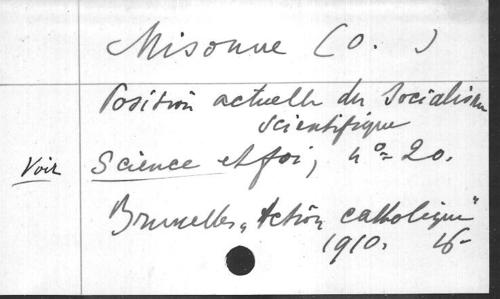 Misonne (O. )
Position actuelle du Socialisme
scientifique
Voir Science et foi, nº = 20.
Bruxelles, "Action catholique"
1910. 16-